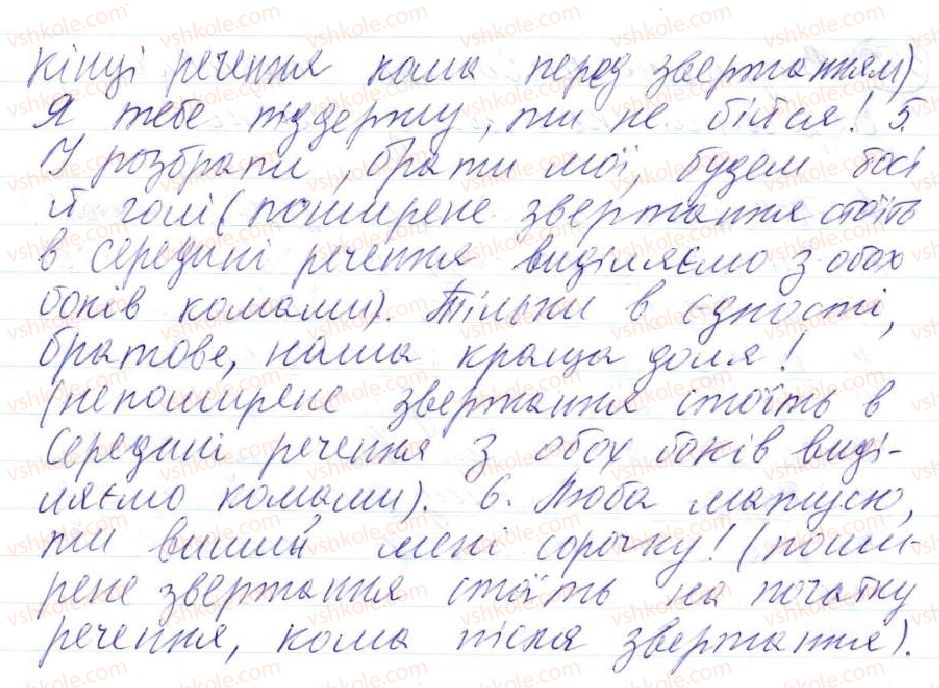 кінці речення кома перед звертанням)
Я тебе піддержу, ти не бійся! 5.
У розбрати, брати мої, будем босі
й голі (поширене звертання стоїть
в середині речення виділяємо з обох
боків комами). Тільки в єдності,
братове, наша краща доля!
(непоширене звертання стоїть в
середині речення з обох боків виді-
ляємо комами). 6. Люба матусю,
ти виший мені сорочку! (поши-
рене звертання стоїть на початку
речення, кома після звертання).